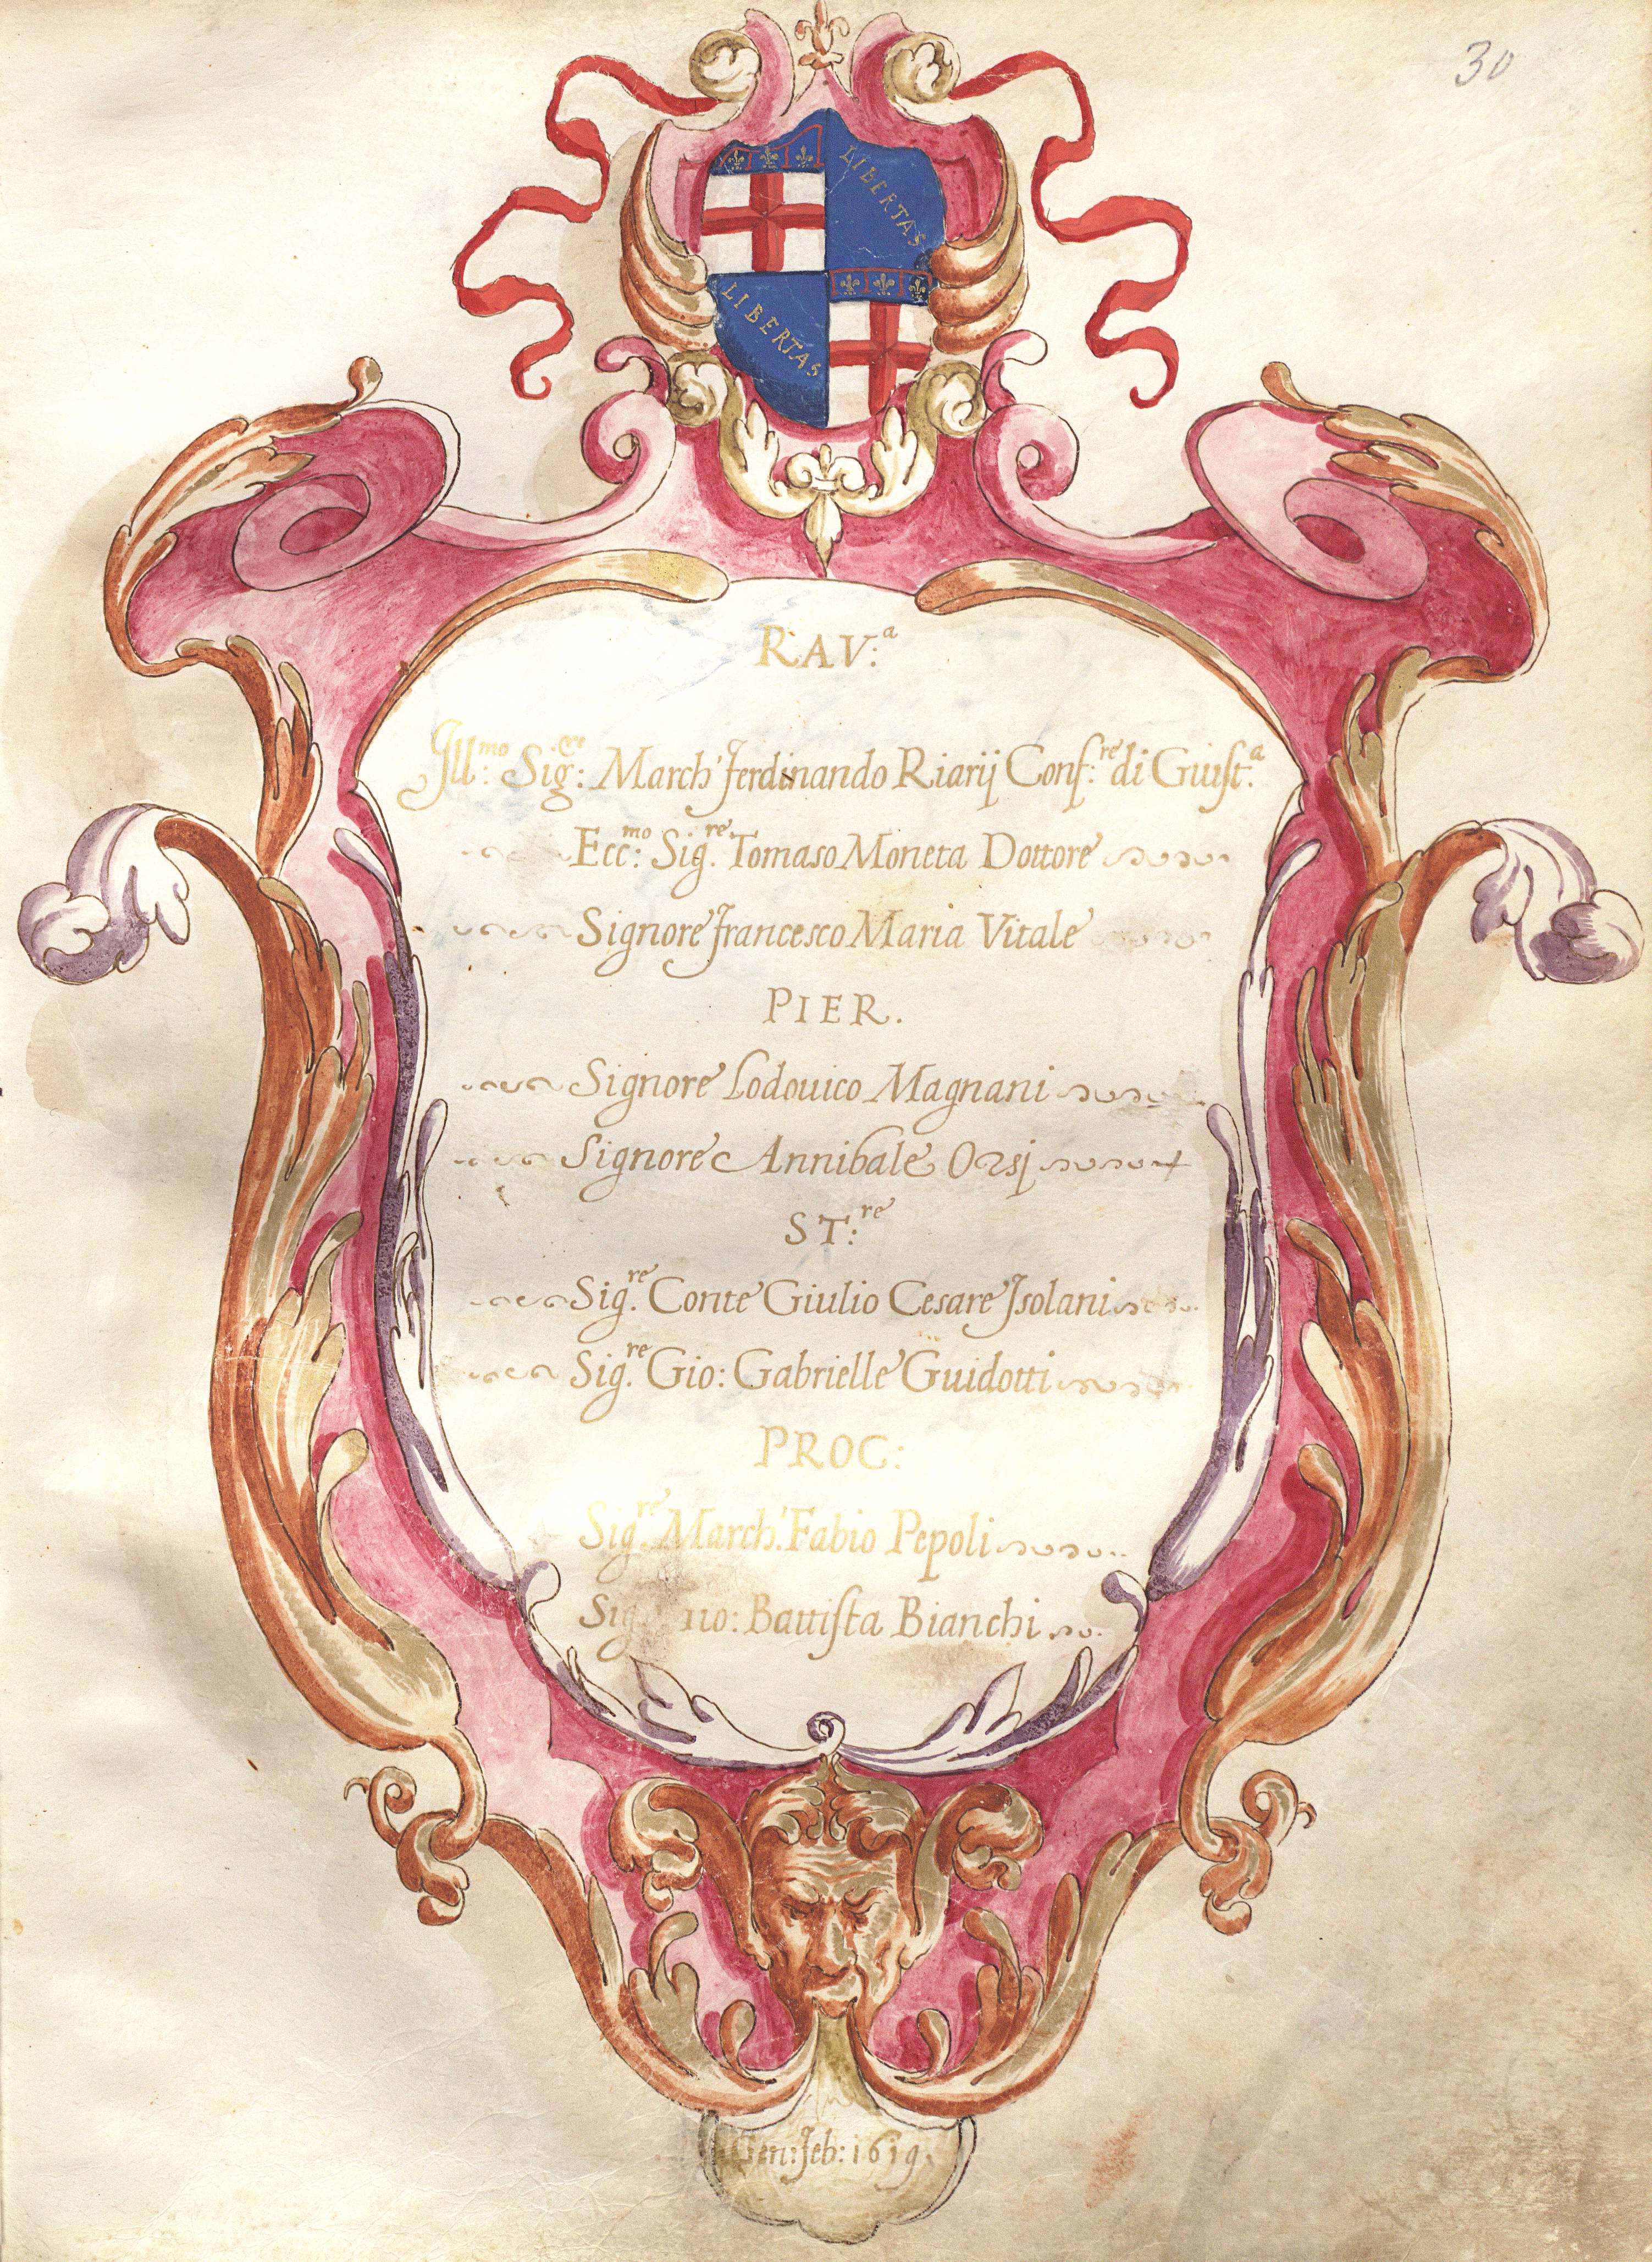 30
LIBERTAS
LIBERTAS
RAV:ª
Ill:mo Sig:re March' Ferdinando Riarij Conf:re di Giust.ª
Ecc:mo Sig.re Tomaso Moneta Dottore
Signore Francesco Maria Vitale
PIER.
Signore Lodouico Magnani
Signore Annibale Orsj
ST:re
Sig.re Conte Giulio Cesare Isolani
Sig.re Gio: Gabrielle Guidotti
PROC:
Sig.re March. Fabio Pepoli
Battista Bianchi
Gen: Feb: 1619.